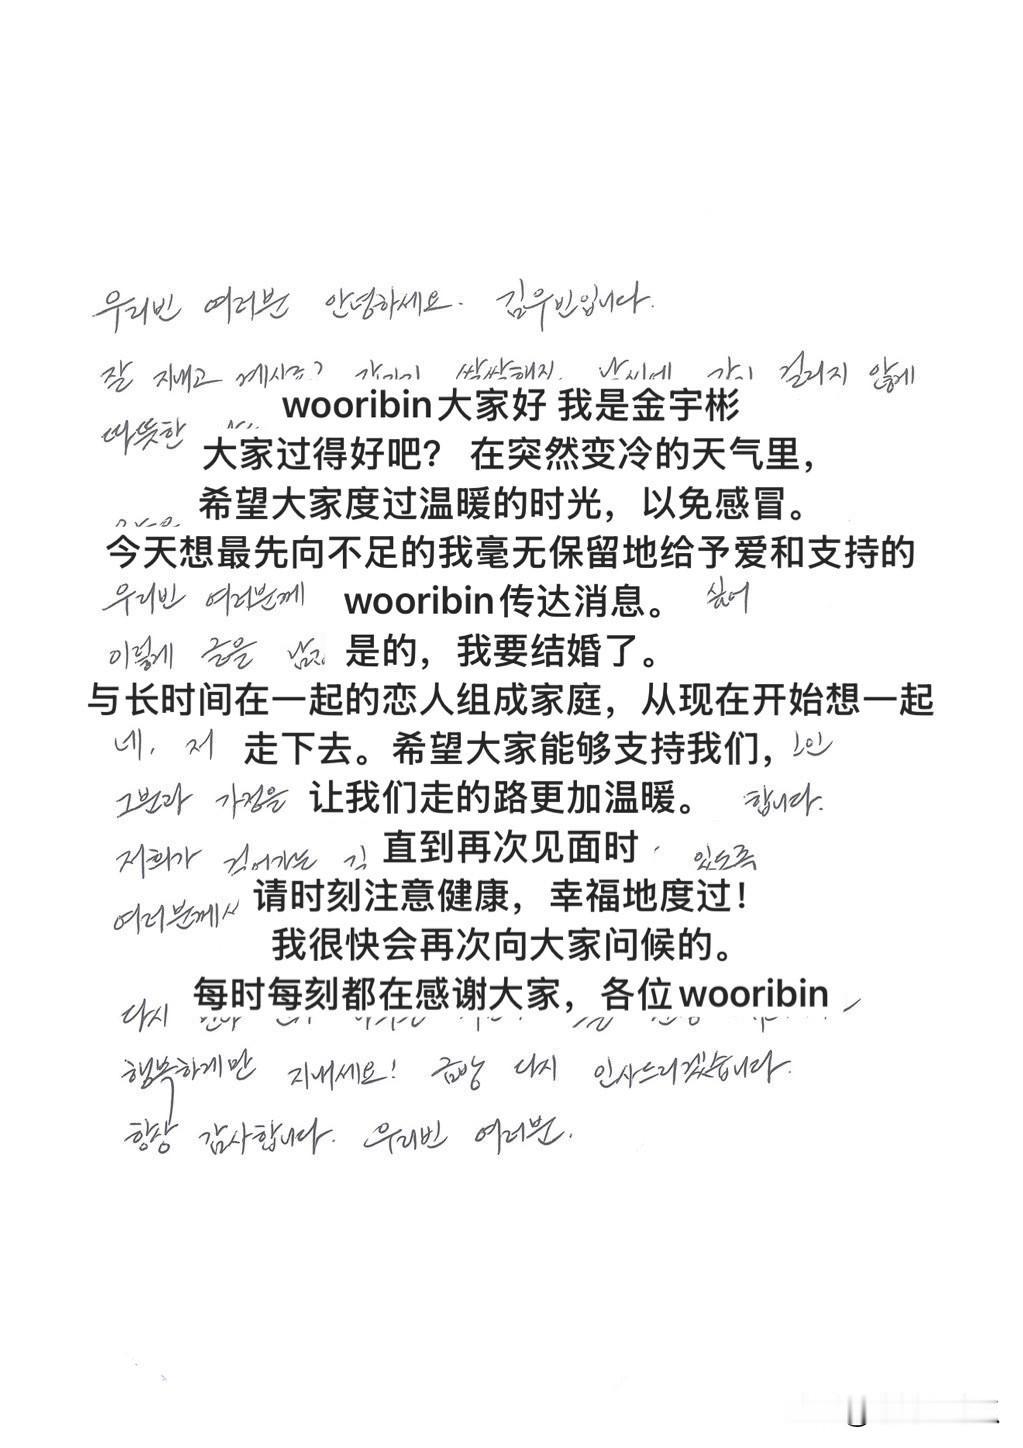 우리빈 여러분 안녕하세요. 김우빈입니다.
잘 지내고 계시죠? 걸리지 않게
wooribin大家好 我是金宇彬
따뜻한
大家过得好吧？ 在突然变冷的天气里，
希望大家度过温暖的时光，以免感冒。
今天想最先向不足的我毫无保留地给予爱和支持的
우리빈 여러분께 wooribin传达消息。 싶어
이렇게 글을 是的，我要结婚了。
与长时间在一起的恋人组成家庭，从现在开始想一起
네, 저 走下去。希望大家能够支持我们，
그분과 가정을 让我们走的路更加温暖。 합니다.
저희가 걸어가는 直到再次见面时 있도록
여러분께서 请时刻注意健康，幸福地度过！
我很快会再次向大家问候的。
每时每刻都在感谢大家，各位wooribin
다시
행복하게만 지내세요! 금방 다시 인사드리겠습니다.
항상 감사합니다. 우리빈 여러분.